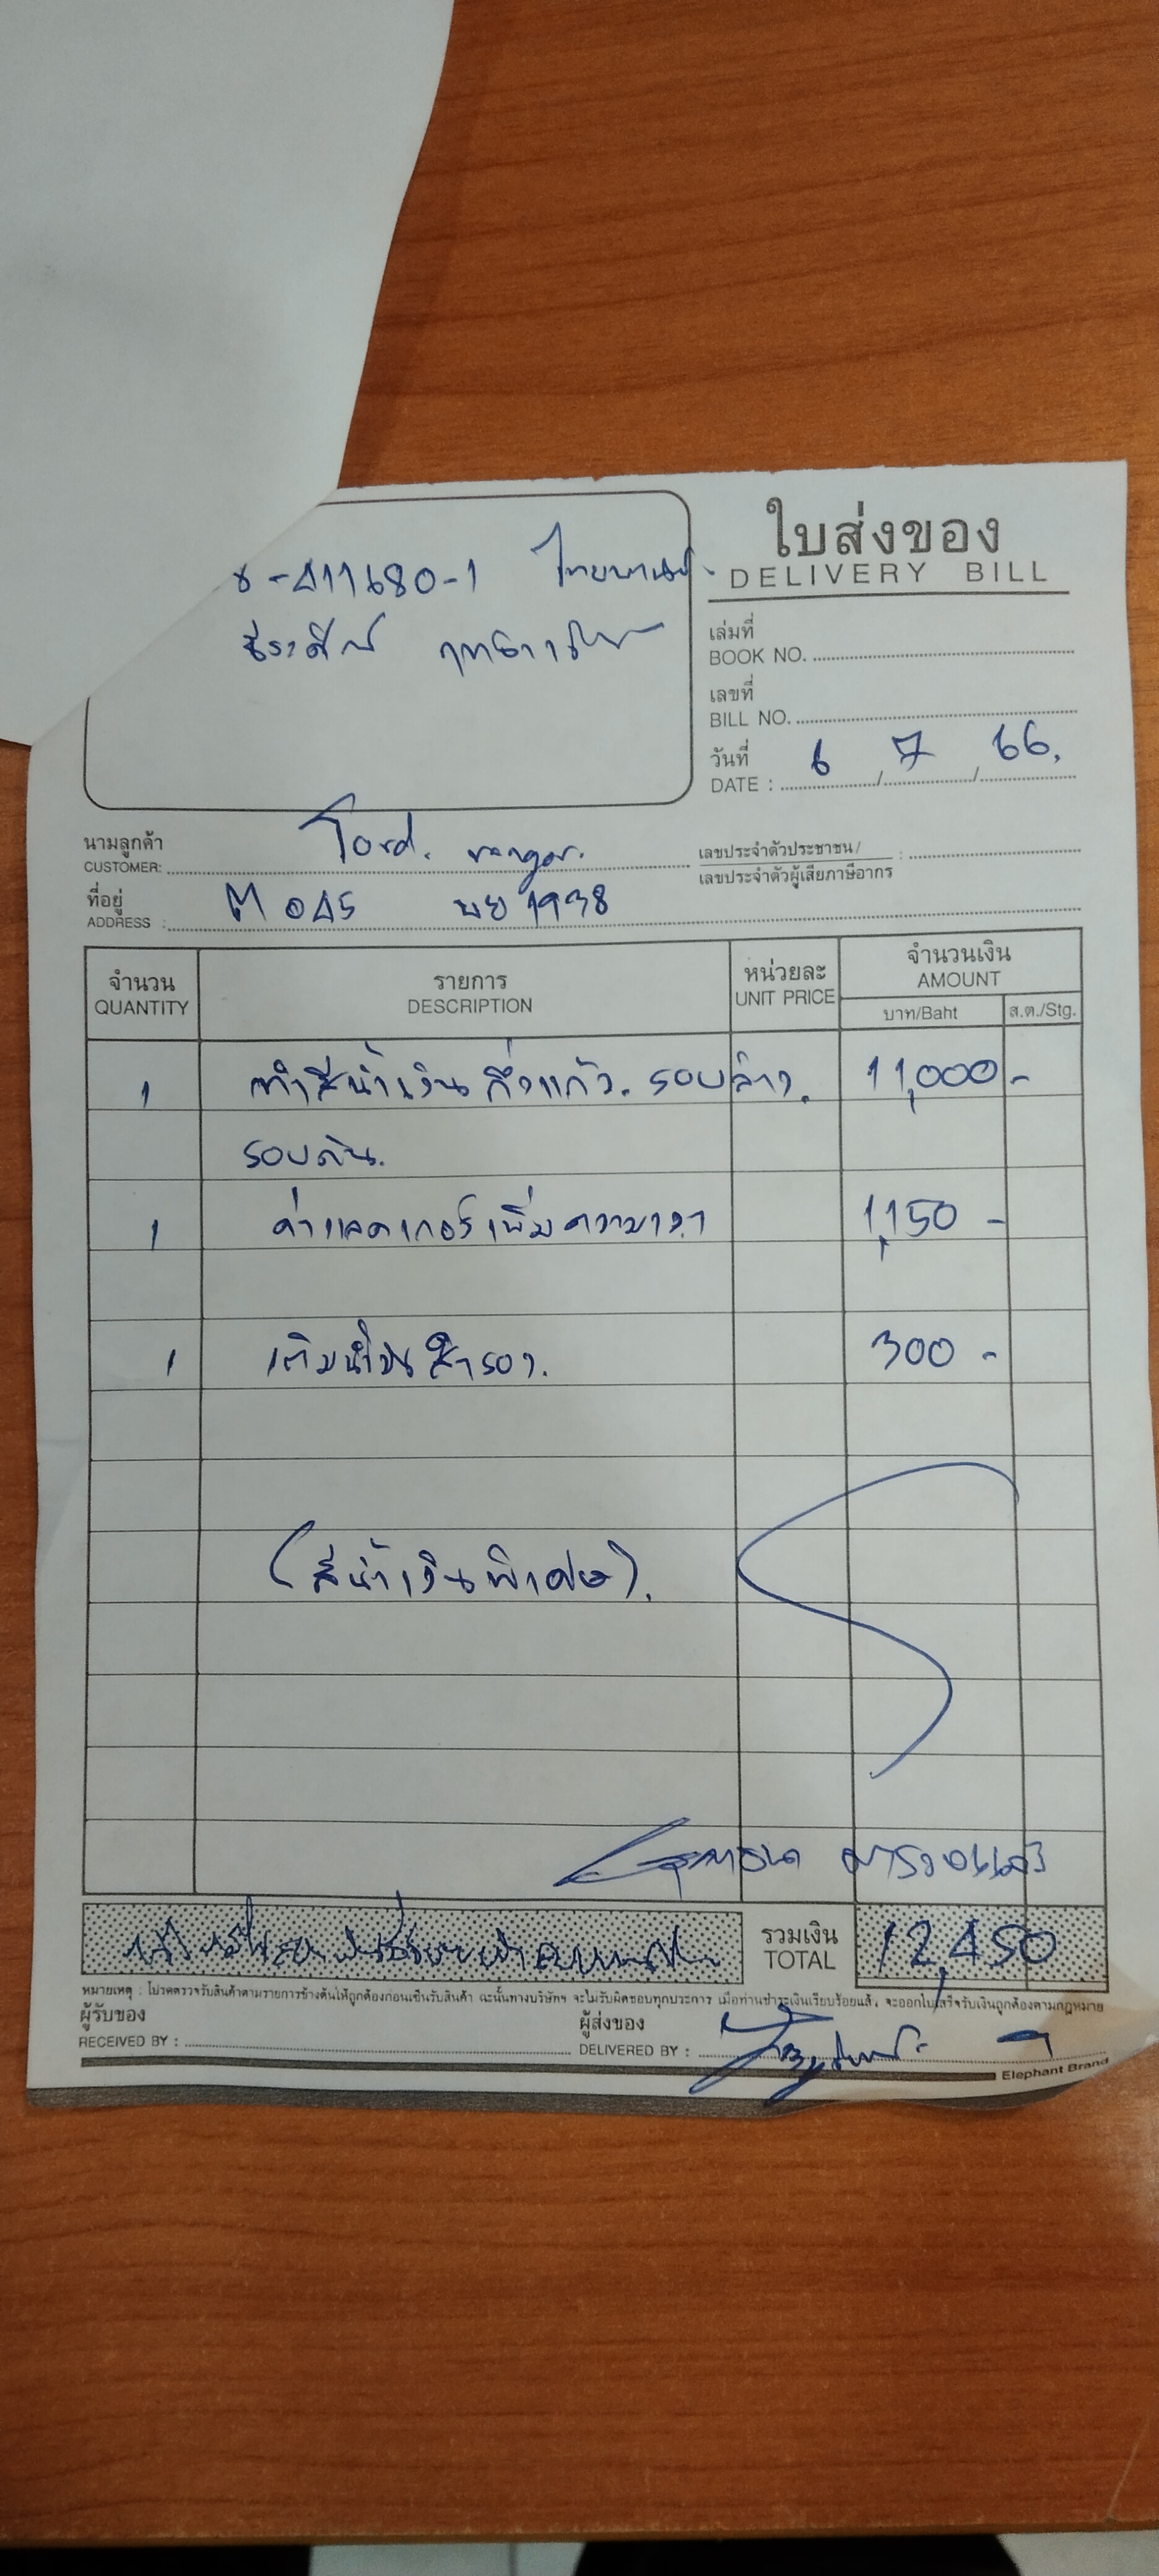 8-411680-1 ไทยพาณิชย์
ใบส่งของ
DELIVERY BILL
เล่มที่
BOOK NO.
เลขที่
BILL NO.
วันที่
DATE : 6 / 7 / 66.
นามลูกค้า
CUSTOMER: Ford. ranger.
เลขประจำตัวประชาชน / :
เลขประจำตัวผู้เสียภาษีอากร
ที่อยู่
ADDRESS : M 045 1938
จำนวน รายการ หน่วยละ จำนวนเงิน
QUANTITY DESCRIPTION UNIT PRICE AMOUNT
บาท/Baht ส.ต./Stg.
1 ทำสีน้ำเงินกึ่งแก้ว. รอบล้าง. 11,000 -
รอบคัน.
1 ค่าแลคเกอร์เพิ่มความเงา 1,150 -
1 เติมน้ำมันสำรอง. 300 -
(สีน้ำเงินพิเศษ).
รวมเงิน
TOTAL 12,450
หมายเหตุ : โปรดตรวจรับสินค้าตามรายการข้างต้นให้ถูกต้องก่อนเซ็นรับสินค้า ฉะนั้นทางบริษัทฯ จะไม่รับผิดชอบทุกประการ เมื่อท่านชำระเงินเรียบร้อยแล้ว, จะออกใบเสร็จรับเงินถูกต้องตามกฎหมาย
ผู้รับของ
RECEIVED BY :
ผู้ส่งของ
DELIVERED BY :
Elephant Brand